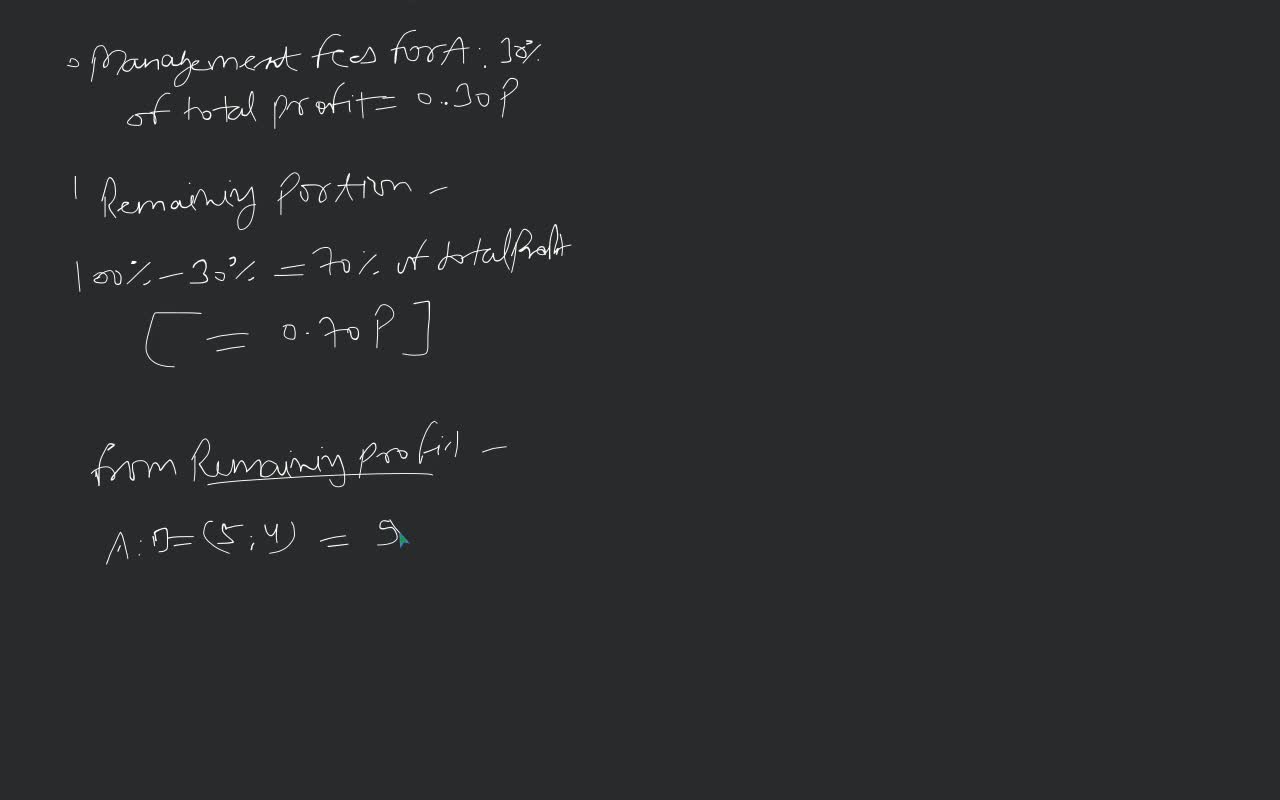 Management fees for A: 30%
of total profit = 0.30P
Remaining portion -
100% - 30% = 70% of total Profit
[ = 0.70P ]
from Remaining profit -
A:B = (5:4) = 9